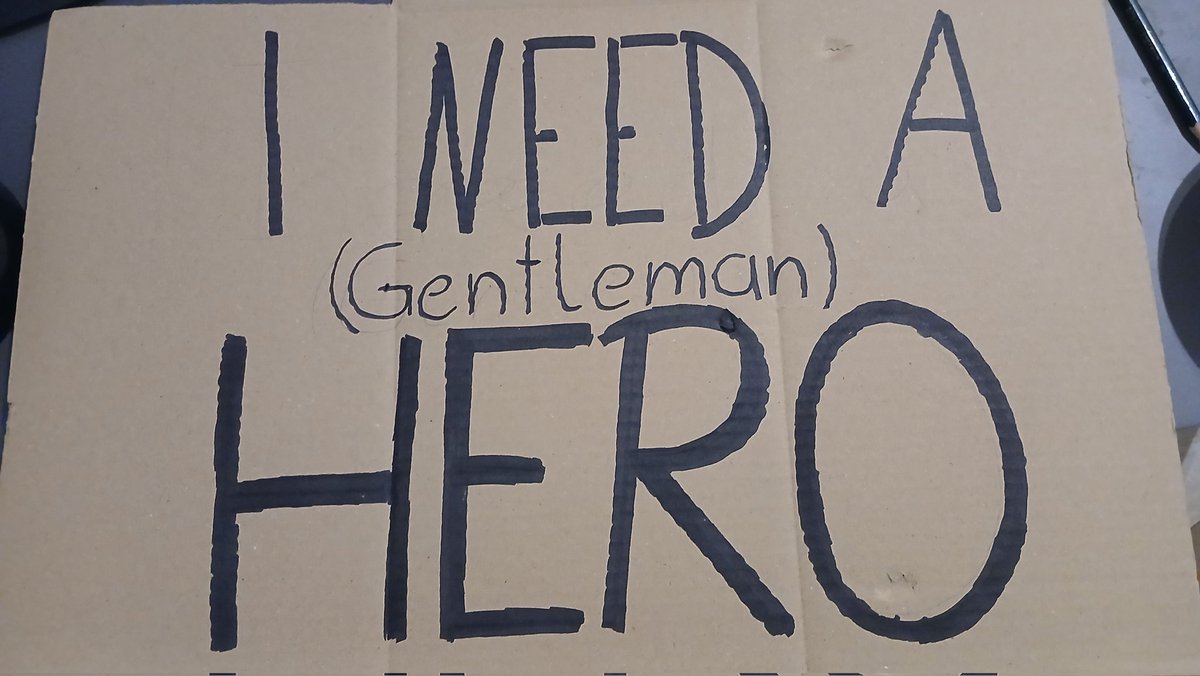 I NEED A
(Gentleman)
HERO